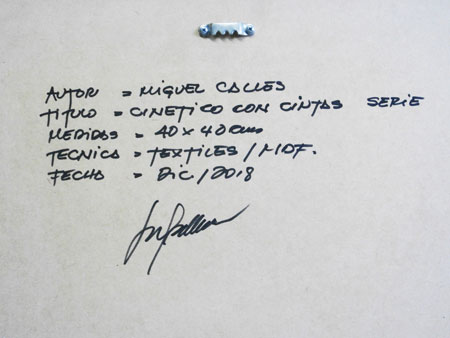 AUTOR = MIGUEL CALLES
TITULO = CINETICO CON CINTAS SERIE
MEDIDAS = 40 x 40 cms
TECNICA = TEXTILES / MDF.
FECHA = Dic / 2018